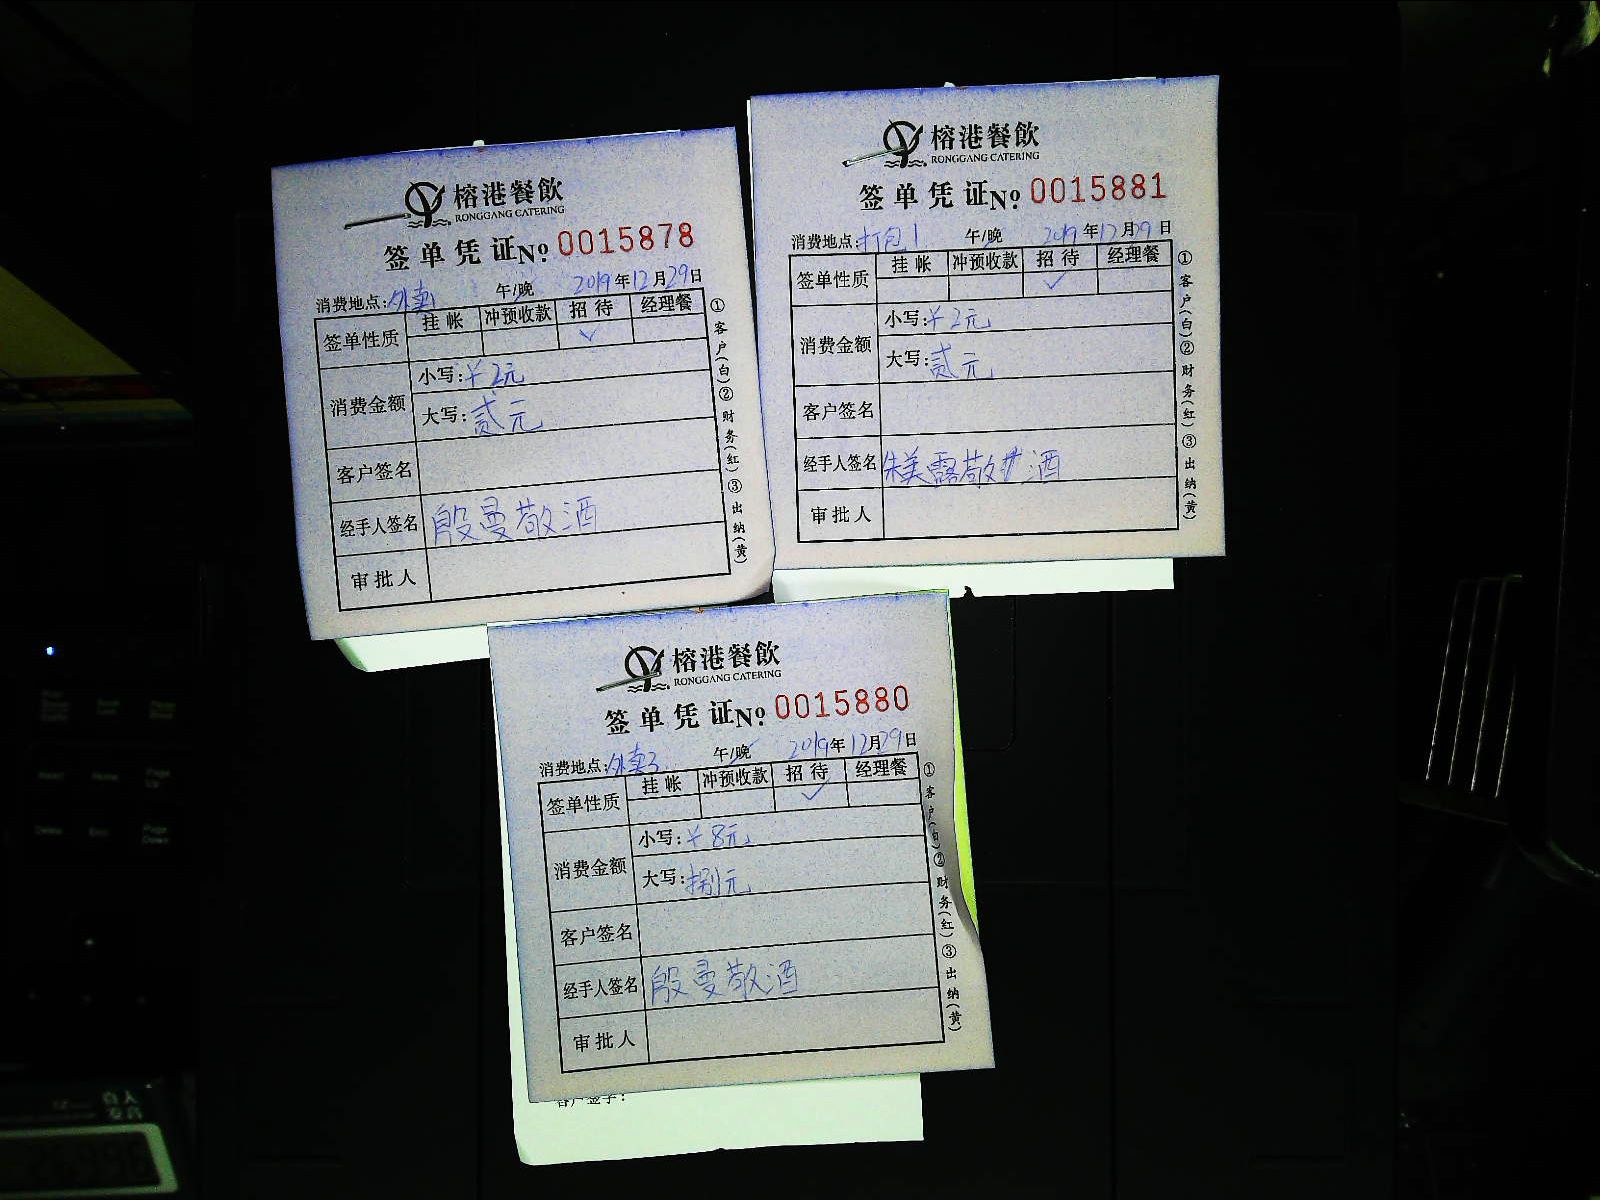 榕港餐飲
RONGGANG CATERING
签单凭证№ 0015878
消费地点:外卖1 午/晚 2019年12月29日
签单性质 挂帐 冲预收款 招待 经理餐
✓
消费金额
小写:¥2元
大写:贰元
客户签名
经手人签名 殷曼敬酒
审批人
①客户(白)②财务(红)③出纳(黄)
榕港餐飲
RONGGANG CATERING
签单凭证№ 0015881
消费地点:打包1 午/晚 2019年12月29日
签单性质 挂帐 冲预收款 招待 经理餐
✓
消费金额
小写:¥2元
大写:贰元
客户签名
经手人签名 朱美露敬酒
审批人
①客户(白)②财务(红)③出纳(黄)
榕港餐飲
RONGGANG CATERING
签单凭证№ 0015880
消费地点:外卖3 午/晚 2019年12月29日
签单性质 挂帐 冲预收款 招待 经理餐
✓
消费金额
小写:¥8元
大写:捌元
客户签名
经手人签名 殷曼敬酒
审批人
①客户(白)②财务(红)③出纳(黄)
客户签字: